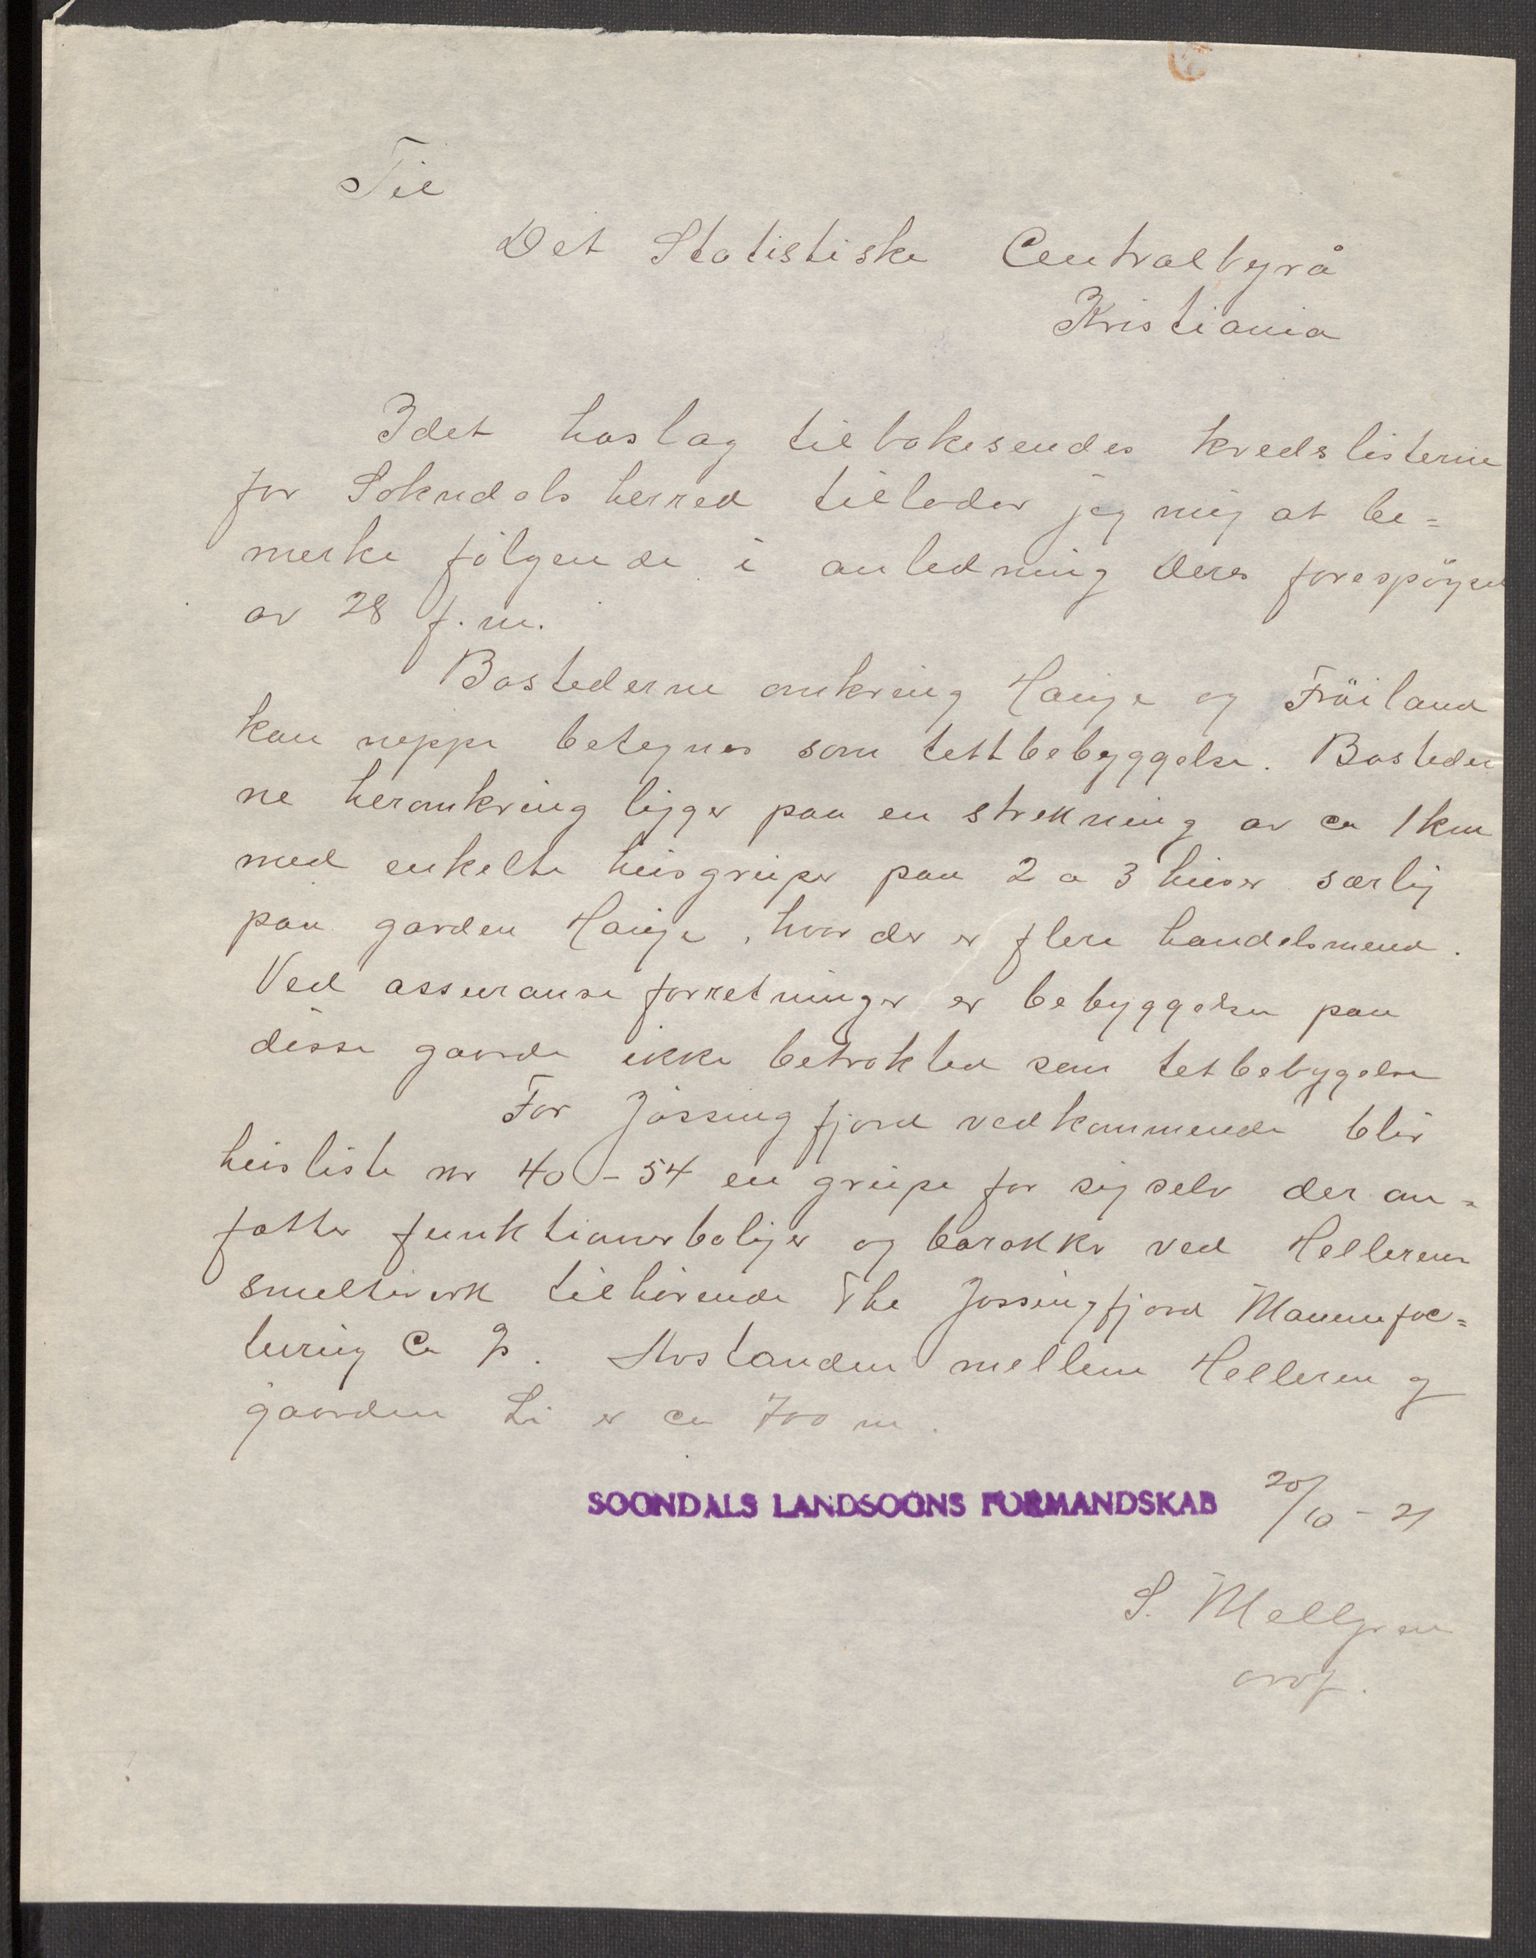 Til
Det Statistiske Centralbyrå
Kristiania
Idet hoslag tilbakesendes kredslisterne
for Sokndals herred tillader jeg mig at be=
merke følgende i anledning Deres forespørsel
av 28 f.m.
Bostederne omkring Hauge og Frøiland
kan neppe betegnes som tettbebyggelse. Bosteder
ne heromkring ligger paa en strekning av ca 1 km
med enkelte husgruper paa 2 a 3 huser særlig
paa garden Hauge, hvor der er flere handelsmend.
Ved assuranse forretninger er bebyggelsen paa
disse gaarde ikke betraktet som tetbebygelse
For Jøssingfjord vedkommende blir
husliste nr 40-54 en grupe for sig selv der om=
fatter funktionærboliger og barakker ved Helleren
smelteverk tilhørende The Jøssingfjord Manufac=
turing Co. Avstanden mellem Helleren og
gaarden Li er ca 700 m.
SOGNDALS LANDSOGNS FORMANDSKAB 20/10-21
S. Mellgren
ordf.